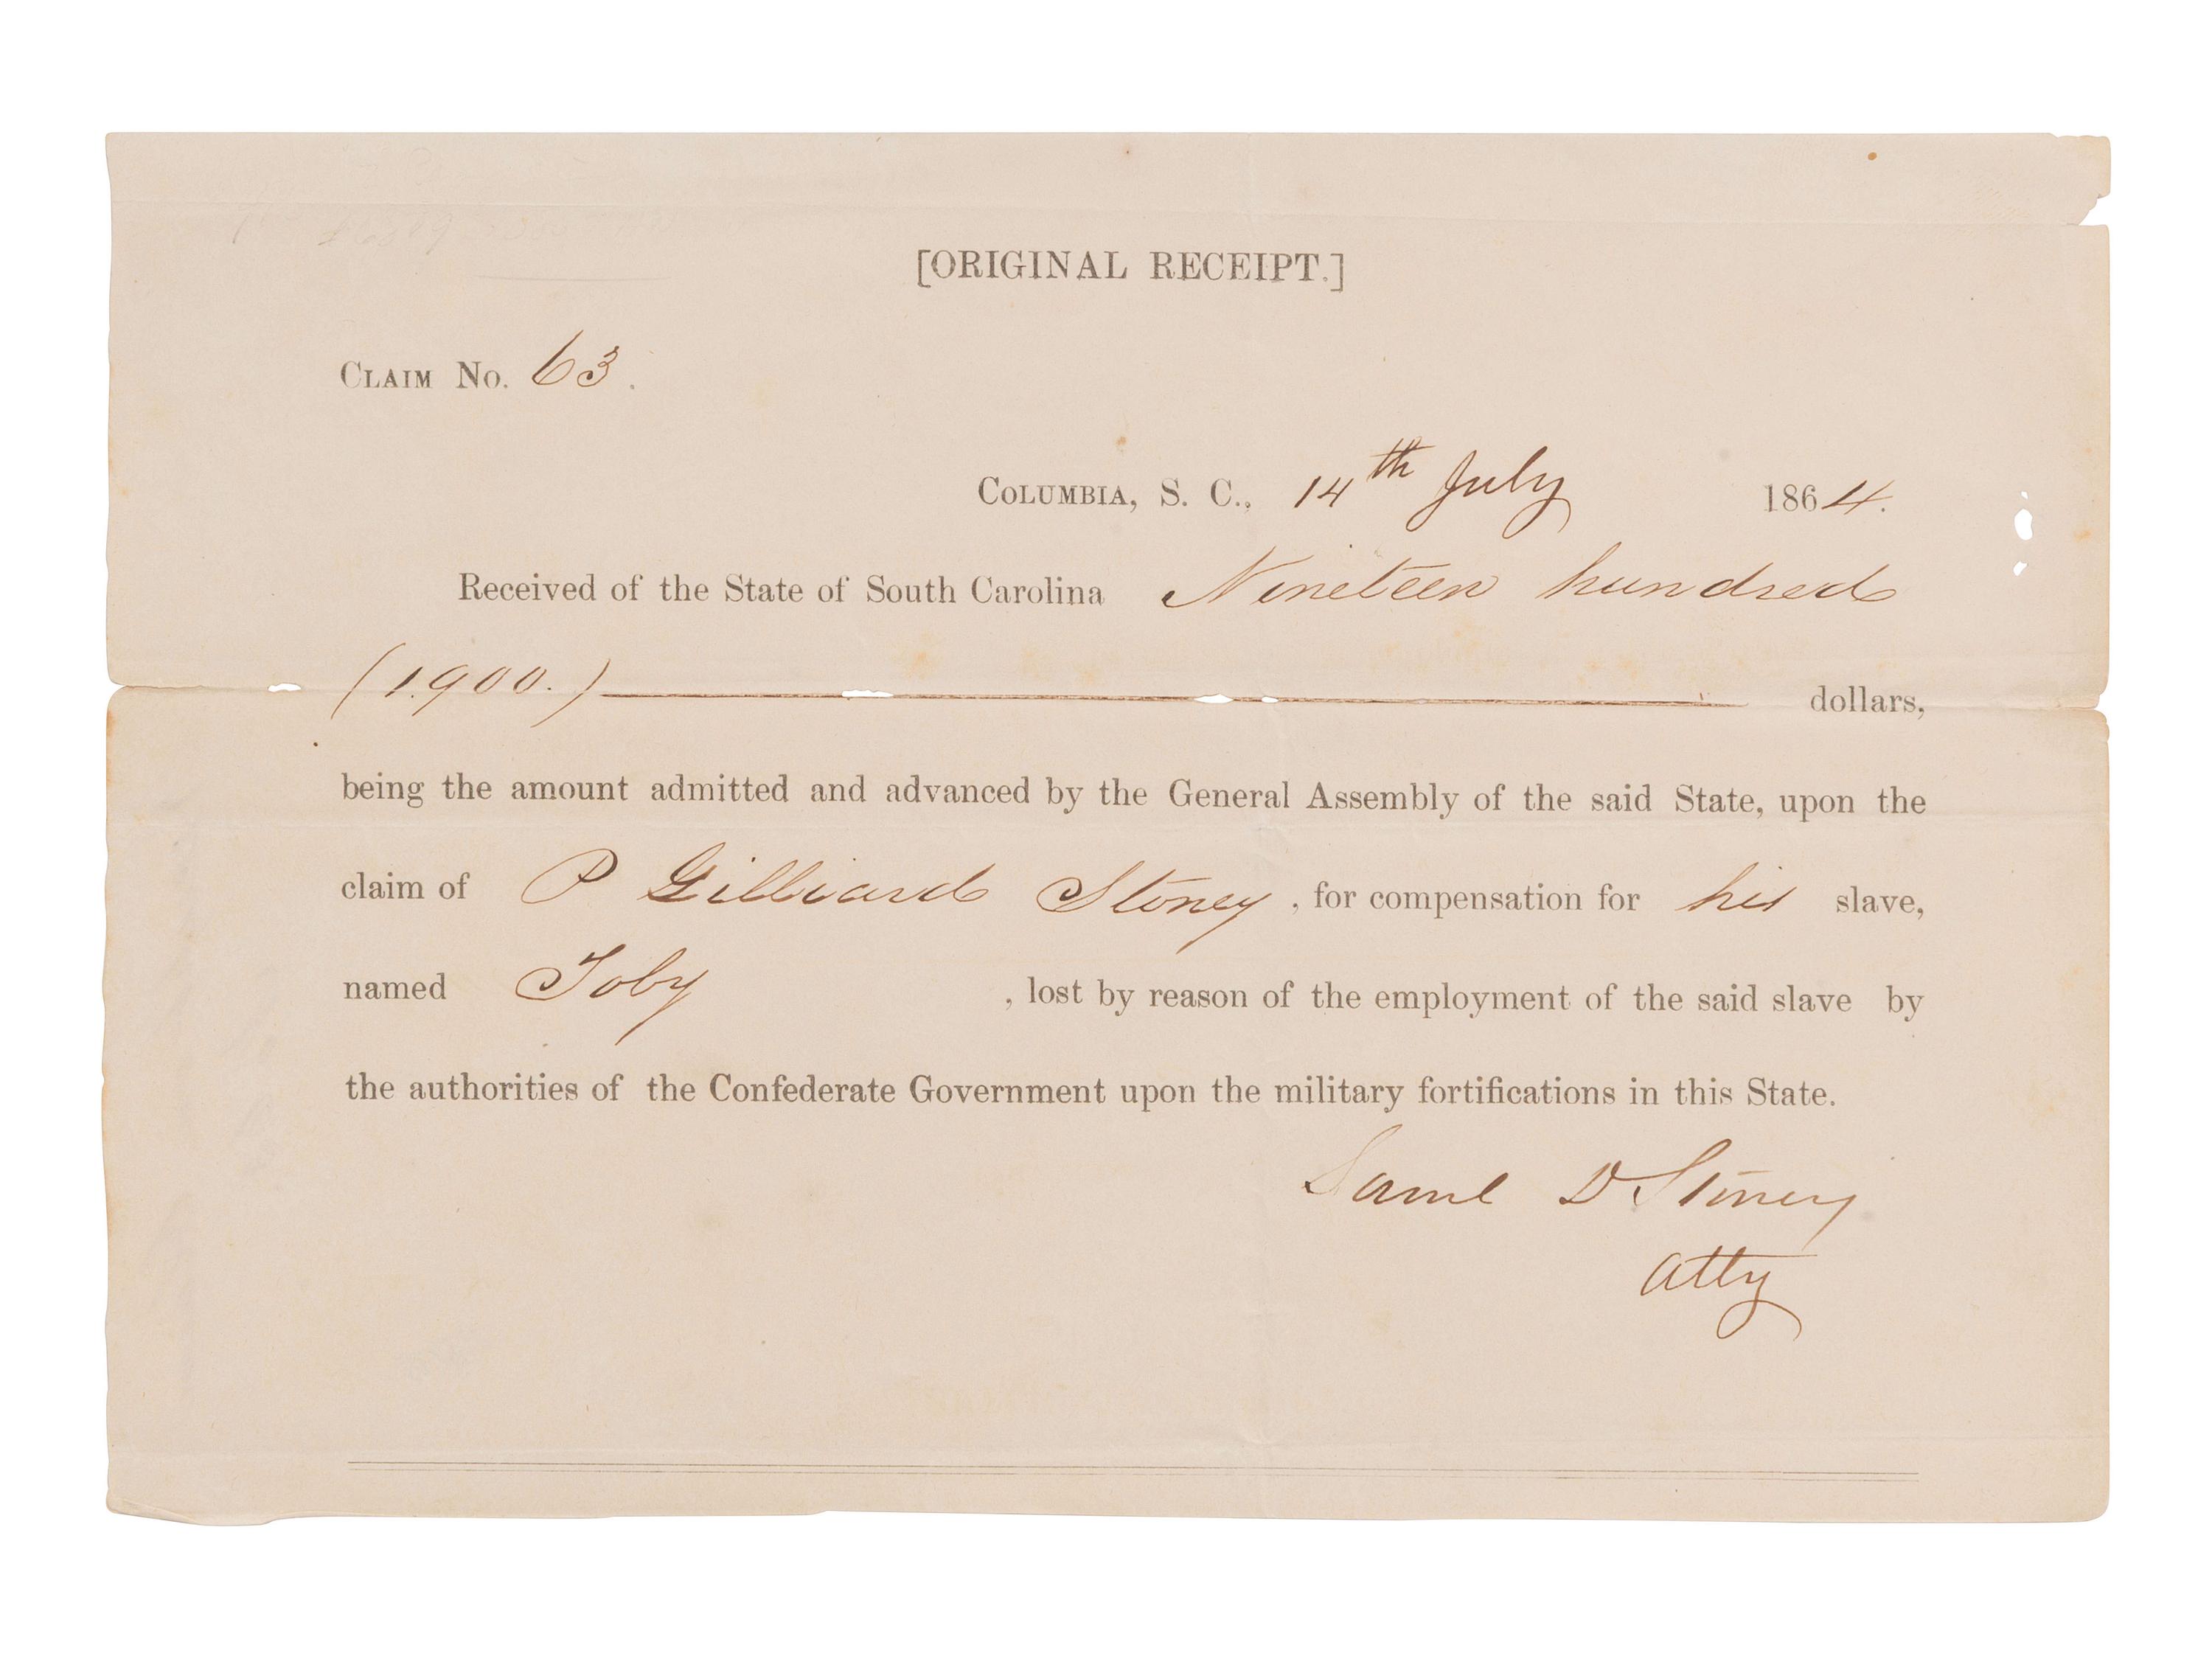 [ORIGINAL RECEIPT.]
CLAIM No. 63.
COLUMBIA, S. C., 14th July 1864.
Received of the State of South Carolina Nineteen hundred
(1.900.) dollars,
being the amount admitted and advanced by the General Assembly of the said State, upon the
claim of P Gilliard Stoney, for compensation for his slave,
named Toby, lost by reason of the employment of the said slave by
the authorities of the Confederate Government upon the military fortifications in this State.
Saml D Stoney
Atty